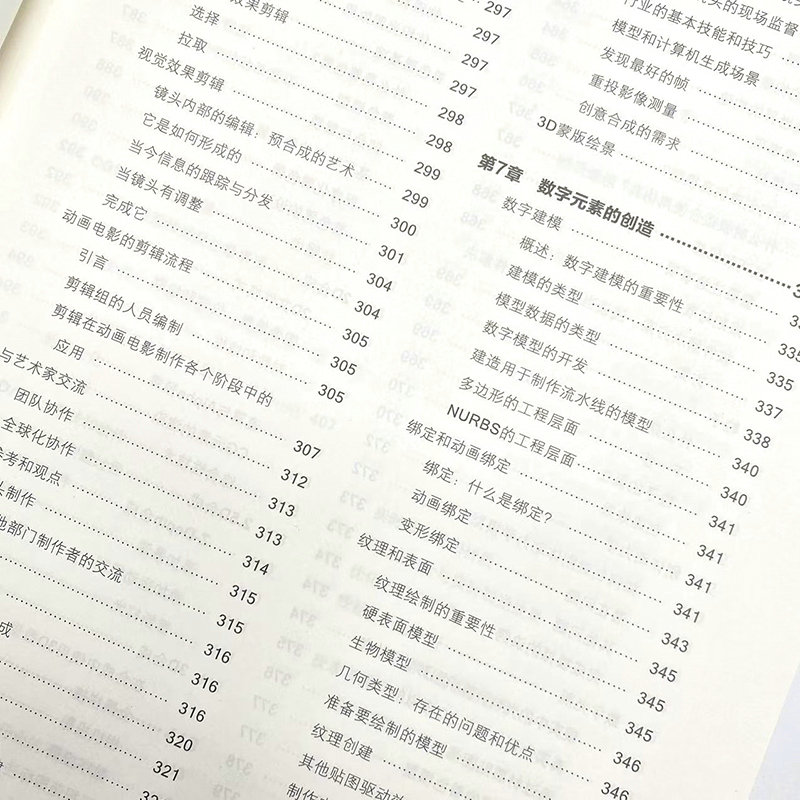 297
297
297
效果剪辑 297
选择 298
拉取 298
视觉效果剪辑 299
镜头内部的编辑:预合成的艺术 299
它是如何形成的 300
当今信息的跟踪与分发 301
当镜头有调整 304
完成它 304
动画电影的剪辑流程 305
引言 305
剪辑组的人员编制 305
剪辑在动画电影制作各个阶段中的
应用 307
与艺术家交流 312
团队协作 313
全球化协作 313
考和观点 314
头制作 315
他部门制作者的交流 315
316
316
成 316
320
321
头的现场监督
行业的基本技能和技巧
模型和计算机生成场景
发现最好的帧
重投影像测量
创意合成的需求
3D蒙版绘景
第7章 数字元素的创造
数字建模
概述:数字建模的重要性 335
建模的类型 335
模型数据的类型 337
数字模型的开发 338
建造用于制作流水线的模型 340
多边形的工程层面 340
NURBS的工程层面 341
绑定和动画绑定 341
绑定:什么是绑定? 341
动画绑定 341
变形绑定 343
纹理和表面 345
纹理绘制的重要性 345
硬表面模型 345
生物模型 346
几何类型:存在的问题和优点 346
准备要绘制的模型
纹理创建
其他贴图驱动